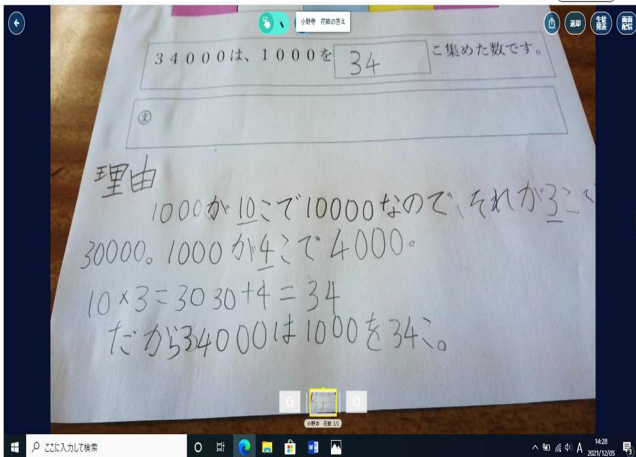 小野寺 花紋の答え
返却
生徒発表
画面配信
34000は、1000を 34 こ集めた数です。
ま
理由
1000が10こで10000なので、それが3こで
30000。1000が4こで4000。
10×3=30 30+4=34
だから34000は1000を34こ。
1/3
ここに入力して検索
A
14:28
2021/12/05